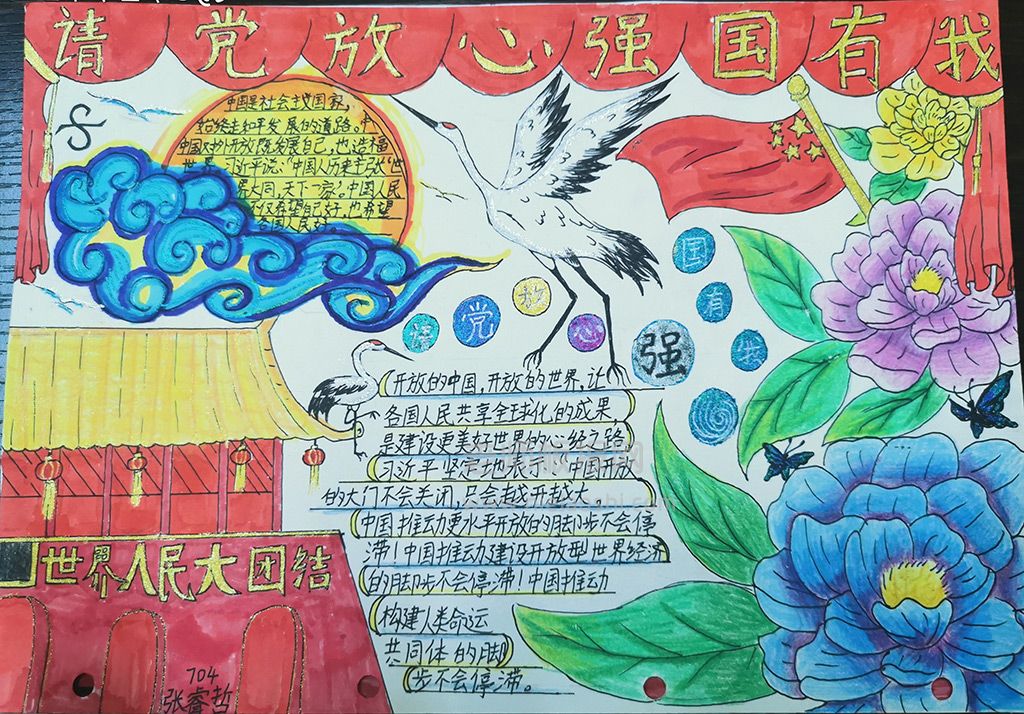 请党放心强国有我
中国是社会主义国家，
始终走和平发展的道路。中
中国对外开放既发展自己，也造福
世界。习近平说："中国人历来主张"世
界大同，天下一家"。中国人民
不仅希望自己好，也希望
各国人民好。
党 放 心 强
国
有
我
开放的中国，开放的世界，让
各国人民共享全球化的成果，
是建设更美好世界的必经之路
习近平坚定地表示：中国开放
的大门不会关闭，只会越开越大。
中国推动更水平开放的脚步不会停
滞！中国推动建设开放型世界经济
的脚步不会停滞！中国推动
构建人类命运
共同体的脚
步不会停滞。
世界人民大团结
704
张睿哲